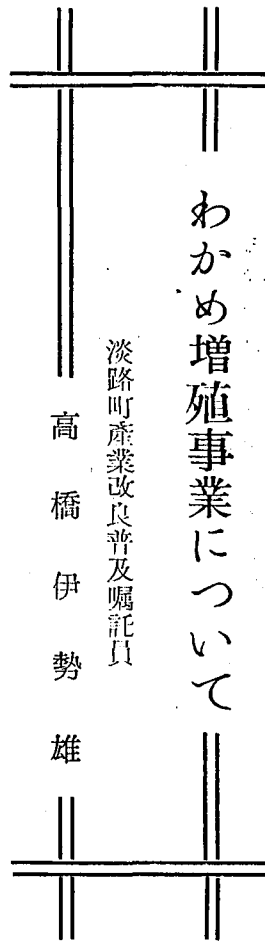 わかめ増殖事業について
淡路町産業改良普及嘱託員
高橋伊勢雄